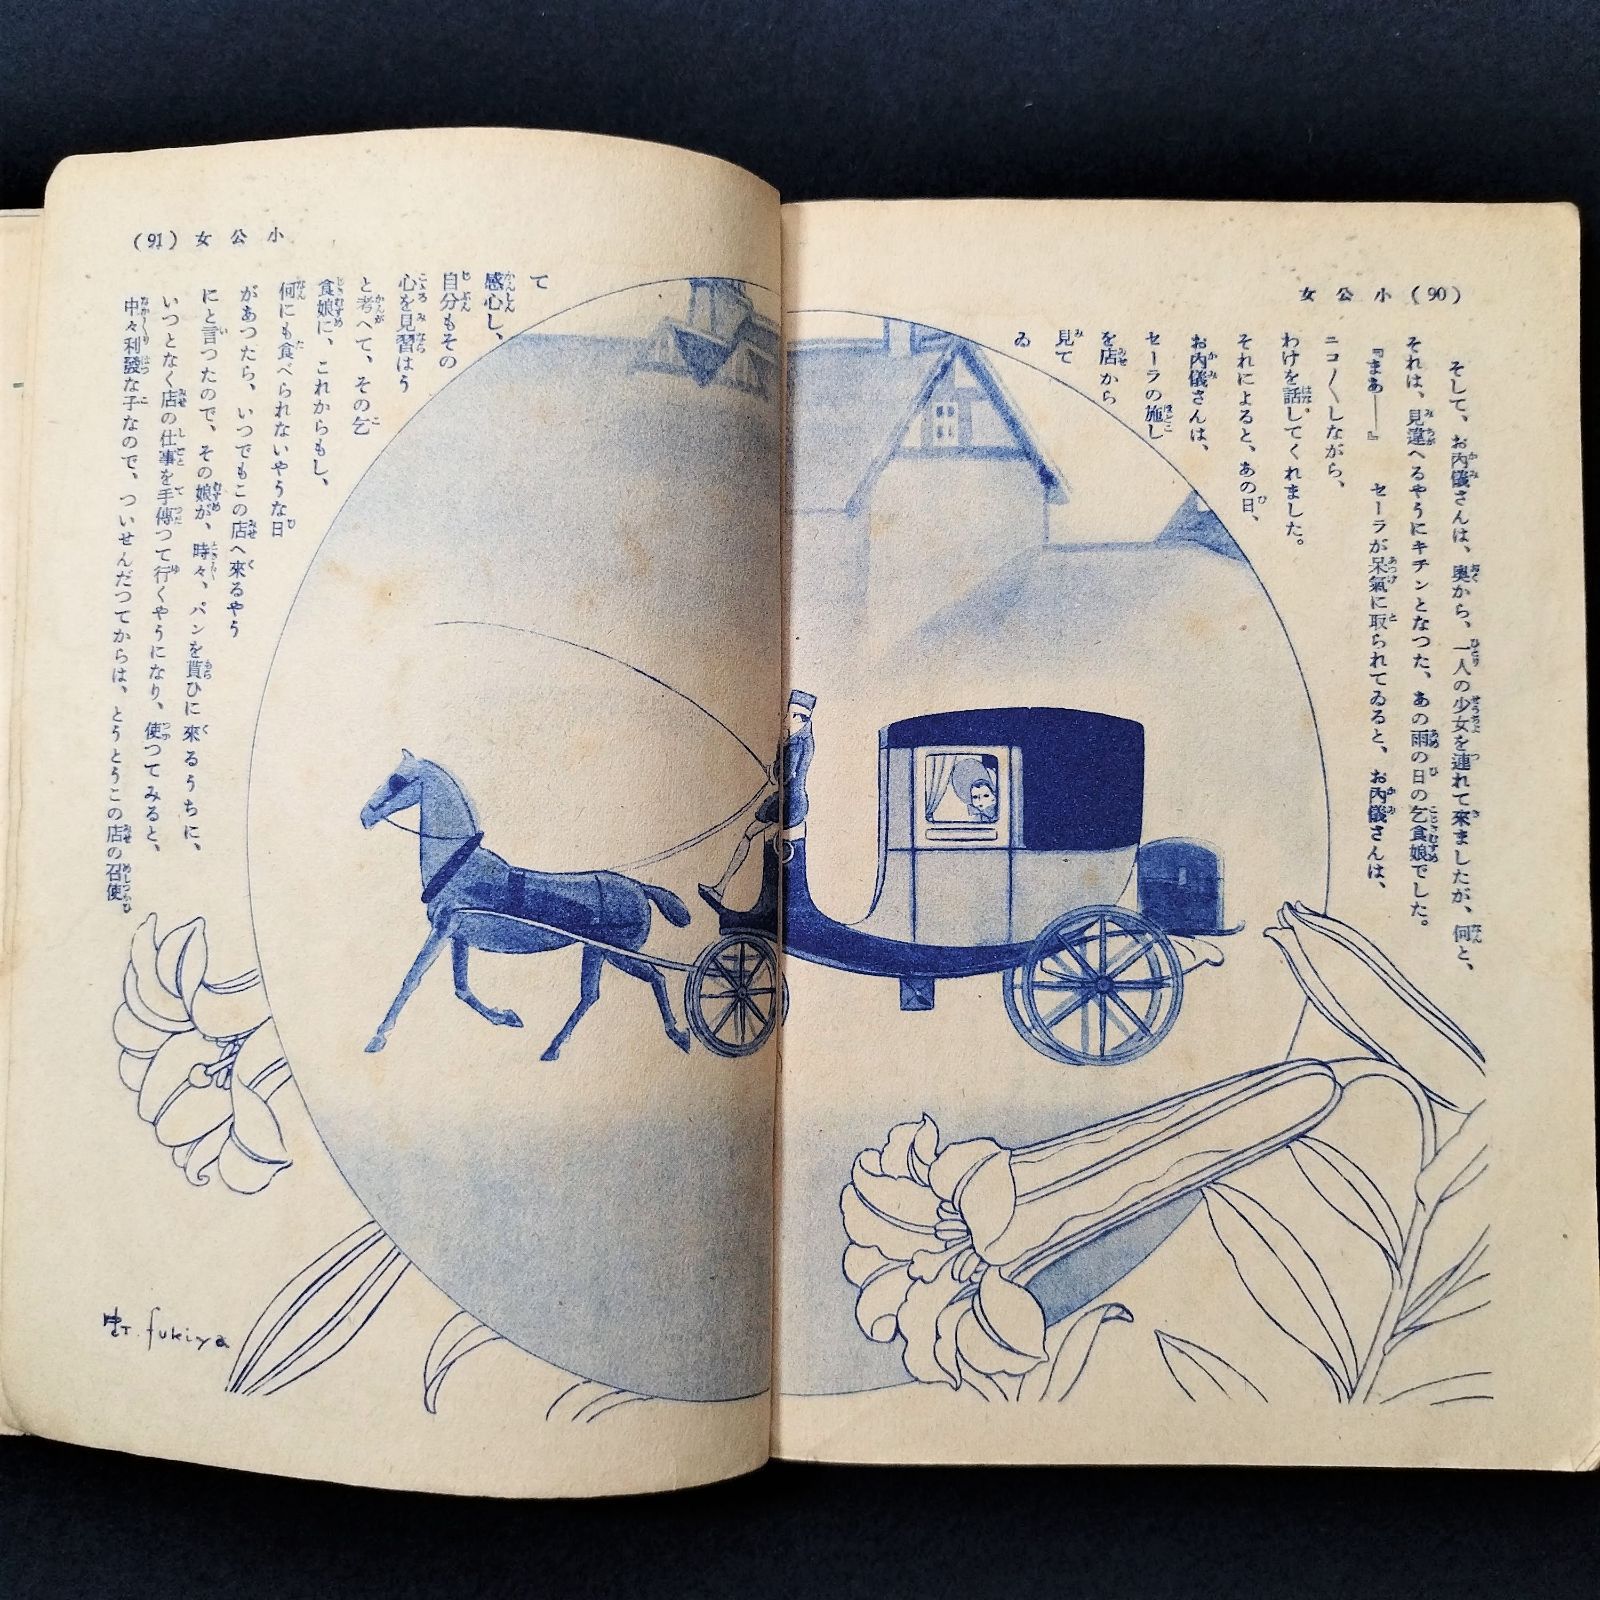 (90) 小公女
そして、お内儀さんは、奥から、一人の少女を連れて來ましたが、何と、
それは、見違へるやうにキチンとなつた、あの雨の日の乞食娘でした。
『まあ――』 セーラが呆氣に取られてゐると、お内儀さんは、
ニコ／＼しながら、
わけを話してくれました。
それによると、あの日、
お内儀さんは、
セーラの施し
を店から
見て
ゐ
(91) 小公女
て
感心し、
自分もその
心を見習はう
と考へて、その乞
食娘に、これからもし、
何にも食べられないやうな日
があつたら、いつでもこの店へ來るやう
にと言つたので、その娘が、時々、パンを貰ひに來るうちに、
いつとなく店の仕事を手傳つて行くやうになり、使つてみると、
中々利發な子なので、ついせんだつてからは、とうとうこの店の召使
虹. fukiya